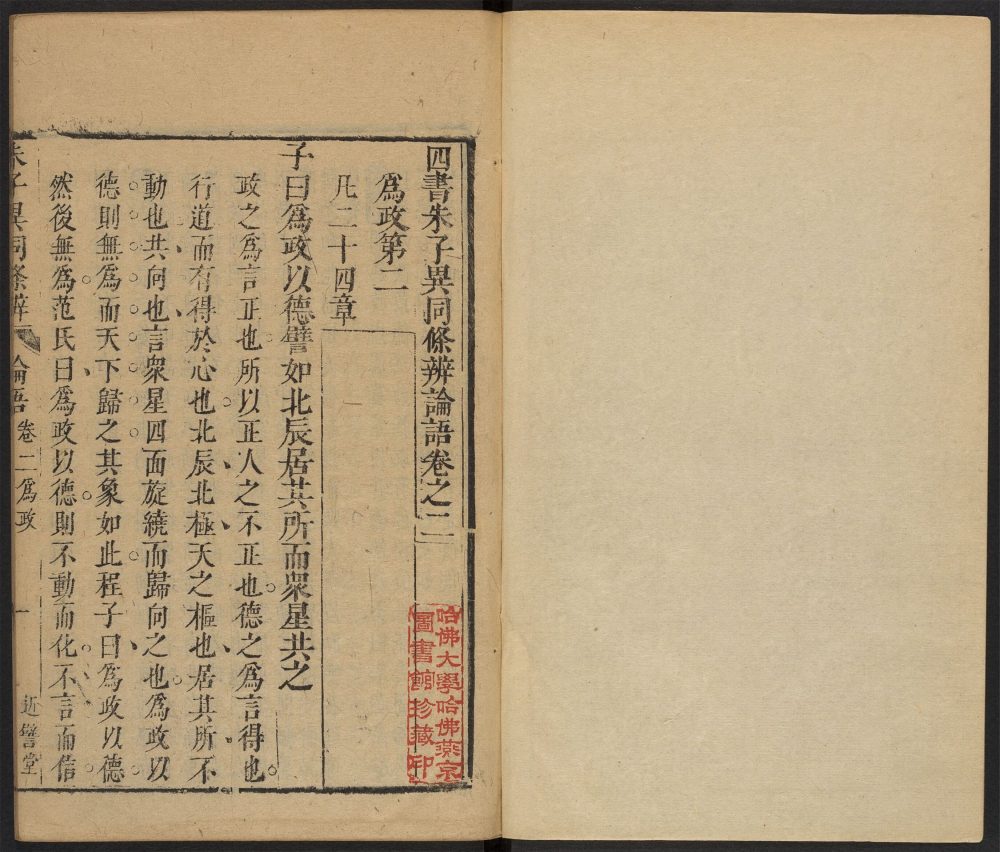 四書朱子異同條辨論語卷之二
爲政第二
凡二十四章
子曰爲政以德譬如北辰居其所而衆星共之
政之爲言正也所以正人之不正也德之爲言得也
行道而有得於心也北辰北極天之樞也居其所不
動也共向也言衆星四面旋繞而歸向之也爲政以
德則無爲而天下歸之其象如此程子曰爲政以德
然後無爲范氏曰爲政以德則不動而化不言而信
朱子異同條辨 論語卷二爲政 一 近譬堂
哈佛大學哈佛燕京
圖書館珍藏印